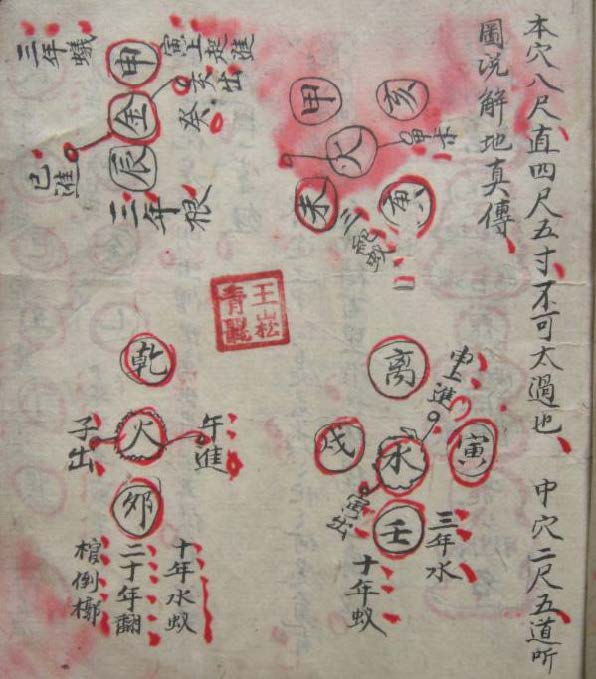 本穴八尺直四尺五寸不可太過也 中穴二尺五道听
圖説解地真傳
亥
甲
火
未
寅上起進
出
癸
申
金
辰
三年蟻
巳進
三年根
王崧
青龍
离
申上進
寅
水
戌
寅出
壬
三年水
十年蚁
乾
午進
火
子出
卯
十年水蚁
二十年翻
棺倒槨